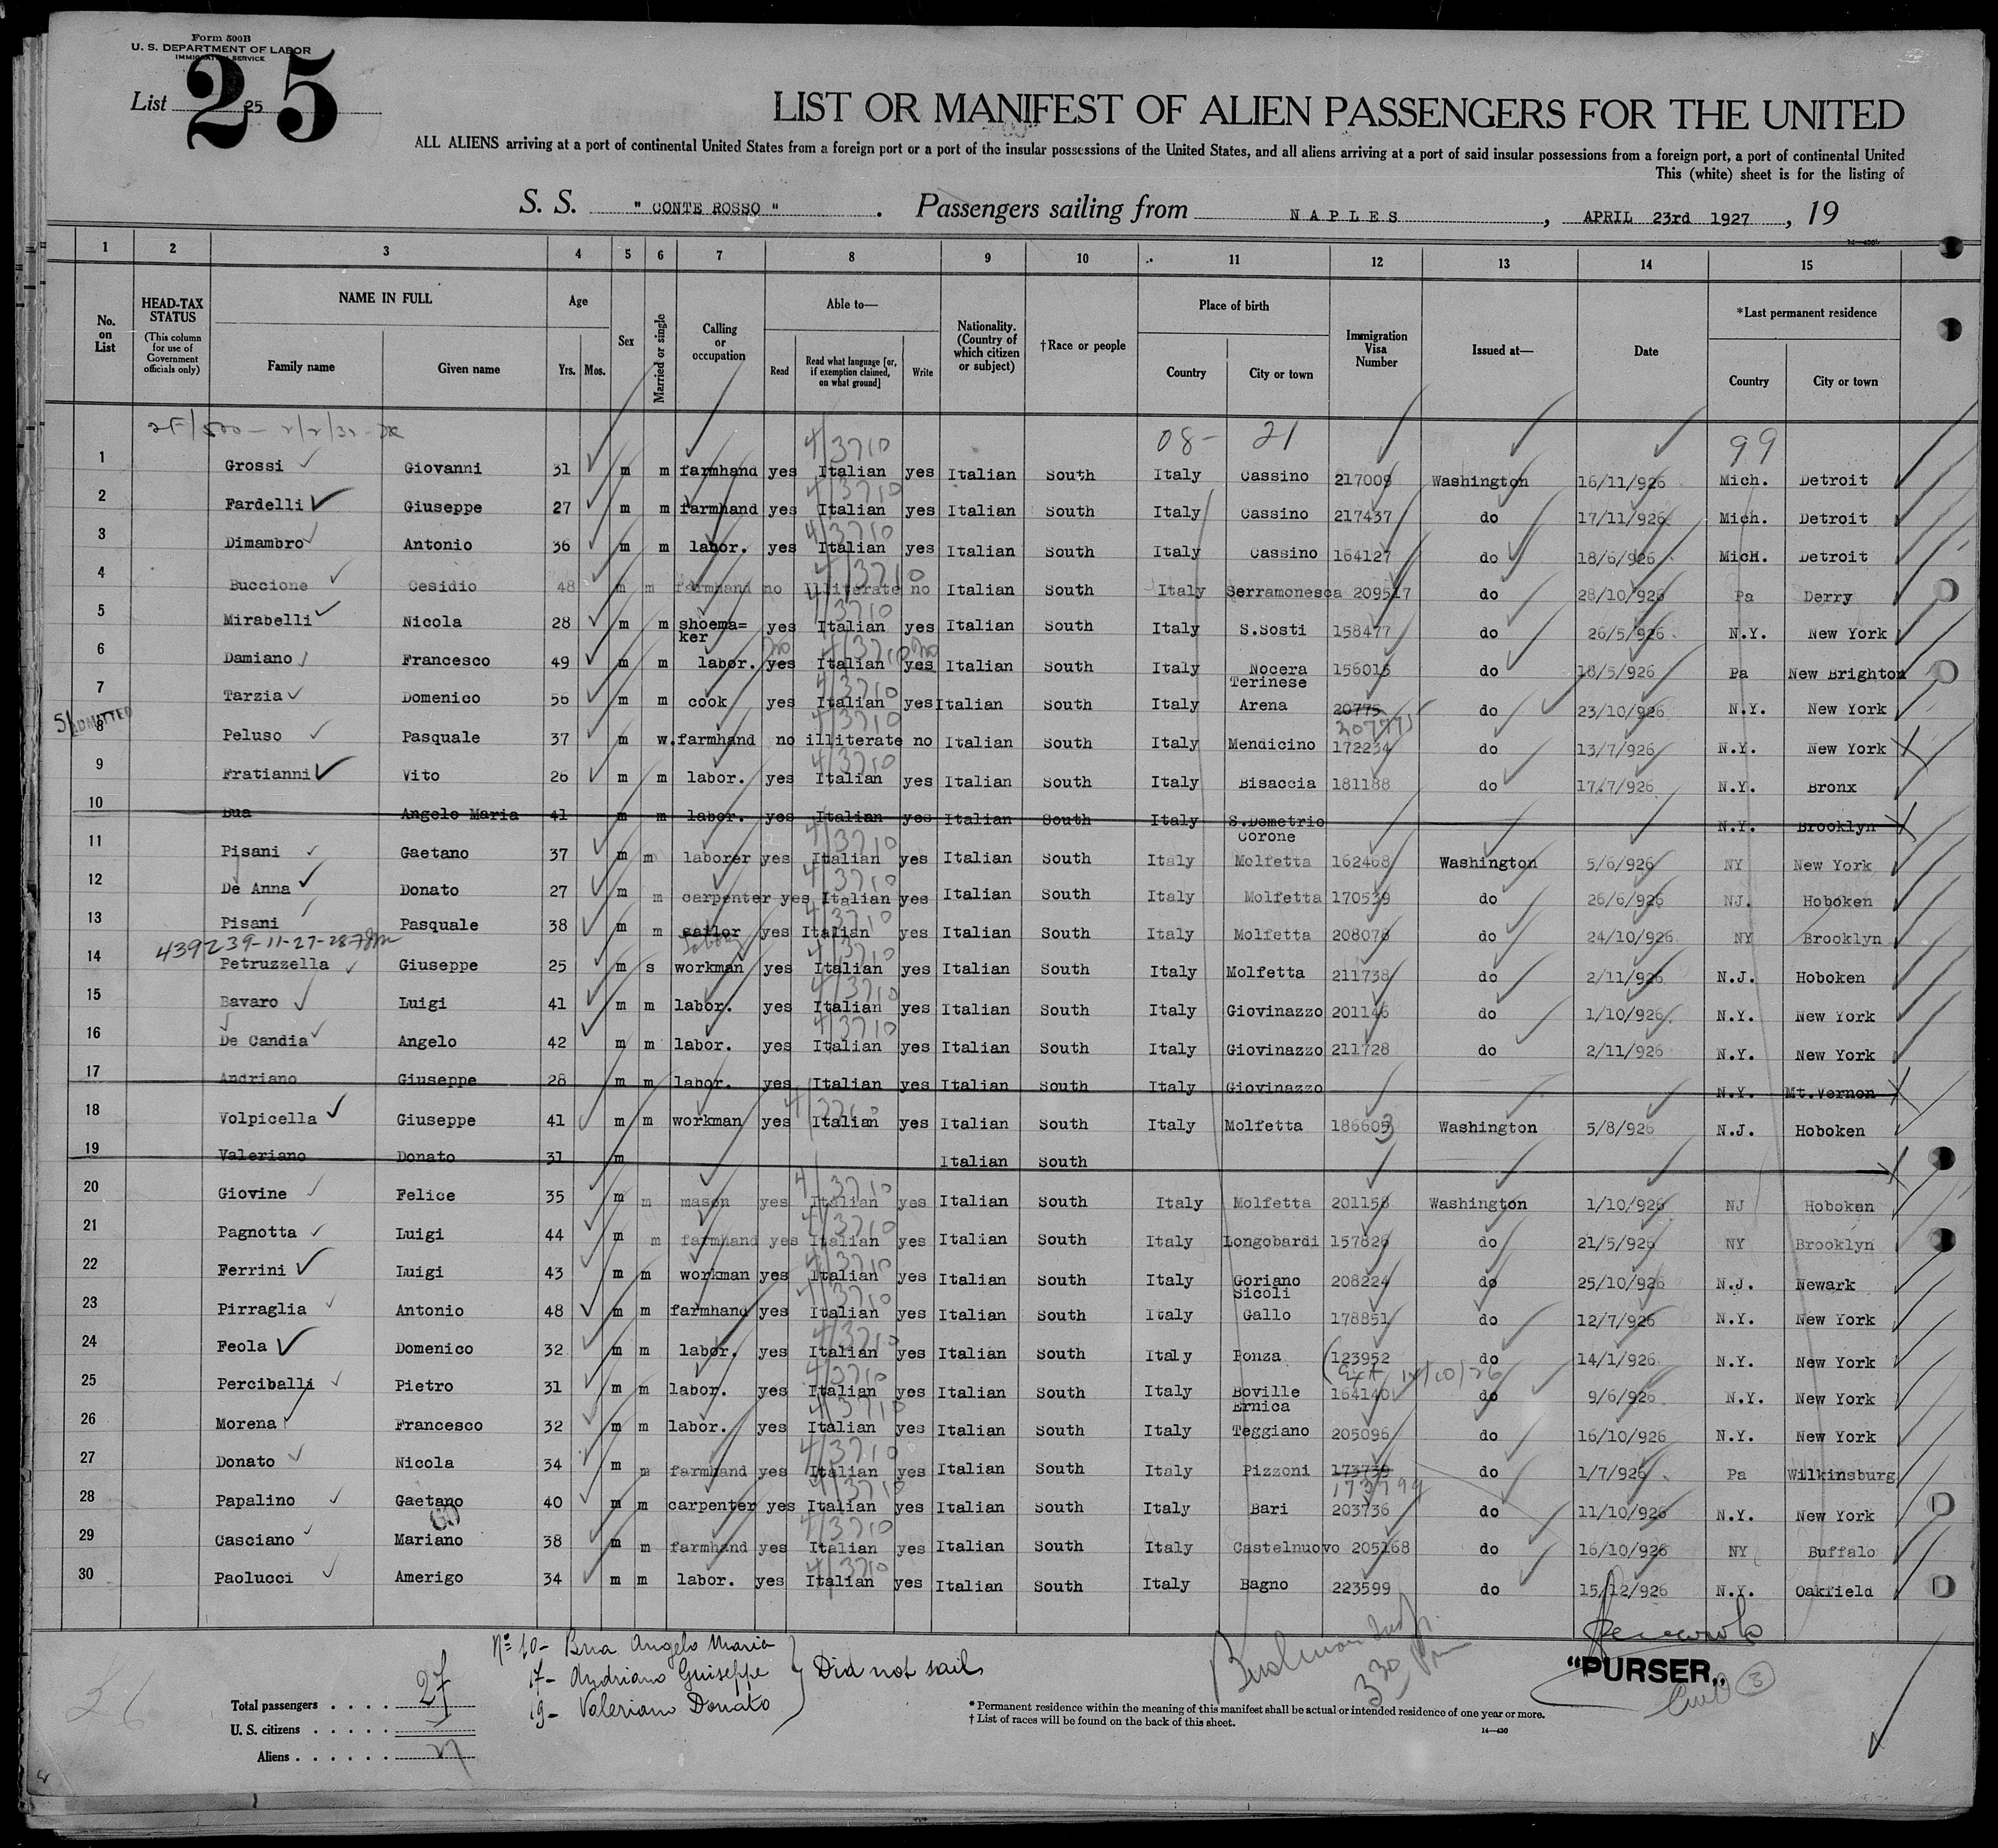 Form 500B
U. S. DEPARTMENT OF LABOR
IMMIGRATION SERVICE
List 25
25
LIST OR MANIFEST OF ALIEN PASSENGERS FOR THE UNITED
ALL ALIENS arriving at a port of continental United States from a foreign port or a port of the insular possessions of the United States, and all aliens arriving at a port of said insular possessions from a foreign port, a port of continental United
This (white) sheet is for the listing of
S. S. " CONTE ROSSO " . Passengers sailing from NAPLES , APRIL 23rd 1927 , 19
1 2 3 4 5 6 7 8 9 10 11 12 13 14 15
No. on List
HEAD-TAX STATUS (This column for use of Government officials only)
NAME IN FULL Family name Given name
Age Yrs. Mos.
Sex
Married or single
Calling or occupation
Able to— Read Read what language [or, if exemption claimed, on what ground] Write
Nationality. (Country of which citizen or subject)
†Race or people
Place of birth Country City or town
Immigration Visa Number
Issued at—
Date
*Last permanent residence Country City or town
08- 21 99
1 Grossi Giovanni 31 m m farmhand yes Italian yes Italian South Italy Cassino 217009 Washington 16/11/926 Mich. Detroit
2 Fardelli Giuseppe 27 m m farmhand yes Italian yes Italian South Italy Cassino 217437 do 17/11/926 Mich. Detroit
3 Dimambro Antonio 36 m m labor. yes Italian yes Italian South Italy Cassino 164127 do 18/6/926 MicH. Detroit
4 Buccione Cesidio 48 m m farmhand no illiterate no Italian South Italy Serramonesca 209517 do 28/10/926 Pa Derry
5 Mirabelli Nicola 28 m m shoema=ker yes Italian yes Italian South Italy S.Sosti 158477 do 26/5/926 N.Y. New York
6 Damiano Francesco 49 m m labor. yes no Italian yes no Italian South Italy Nocera Terinese 156016 do 18/5/926 Pa New Brighton
7 Tarzia Domenico 56 m m cook yes Italian yes Italian South Italy Arena 20775 207775 do 23/10/926 N.Y. New York
ADMITTED
8 Peluso Pasquale 37 m w. farmhand no illiterate no Italian South Italy Mendicino 172234 do 13/7/926 N.Y. New York
9 Fratianni Vito 26 m m labor. yes Italian yes Italian South Italy Bisaccia 181188 do 17/7/926 N.Y. Bronx
10 Bua Angelo Maria 41 m m labor. yes Italian yes Italian South Italy S.Demetrio Corone N.Y. Brooklyn
11 Pisani Gaetano 37 m m laborer yes Italian yes Italian South Italy Molfetta 162468 Washington 5/6/926 NY New York
12 De Anna Donato 27 m m carpenter yes Italian yes Italian South Italy Molfetta 170539 do 26/6/926 NJ. Hoboken
13 Pisani Pasquale 38 m m sailor yes Italian yes Italian South Italy Molfetta 208078 do 24/10/926 NY Brooklyn
14 Petruzzella Giuseppe 25 m s workman yes Italian yes Italian South Italy Molfetta 211738 do 2/11/926 N.J. Hoboken
15 Bavaro Luigi 41 m m labor. yes Italian yes Italian South Italy Giovinazzo 201146 do 1/10/926 N.Y. New York
16 De Candia Angelo 42 m m labor. yes Italian yes Italian South Italy Giovinazzo 211728 do 2/11/926 N.Y. New York
17 Andriano Giuseppe 28 m m labor. yes Italian yes Italian South Italy Giovinazzo N.Y. Mt.Vernon
18 Volpicella Giuseppe 41 m m workman yes Italian yes Italian South Italy Molfetta 186603 Washington 5/8/926 N.J. Hoboken
19 Valeriano Donato 31 m Italian South
20 Giovine Felice 35 m m mason yes Italian yes Italian South Italy Molfetta 201158 Washington 1/10/926 NJ Hoboken
21 Pagnotta Luigi 44 m m farmhand yes Italian yes Italian South Italy Longobardi 157826 do 21/5/926 NY Brooklyn
22 Ferrini Luigi 43 m m workman yes Italian yes Italian South Italy Goriano Sicoli 208224 do 25/10/926 N.J. Newark
23 Pirraglia Antonio 48 m m farmhand yes Italian yes Italian South Italy Gallo 178851 do 12/7/926 N.Y. New York
24 Feola Domenico 32 m m labor. yes Italian yes Italian South Italy Ponza 123952 do 14/1/926 N.Y. New York
25 Perciballi Pietro 31 m m labor. yes Italian yes Italian South Italy Boville Ernica 164140 do 9/6/926 N.Y. New York
26 Morena Francesco 32 m m labor. yes Italian yes Italian South Italy Teggiano 205096 do 16/10/926 N.Y. New York
27 Donato Nicola 34 m m farmhand yes Italian yes Italian South Italy Pizzoni 173739 do 1/7/926 Pa Wilkinsburg
28 Papalino Gaetano 40 m m carpenter yes Italian yes Italian South Italy Bari 203736 do 11/10/926 N.Y. New York
29 Casciano Mariano 38 m m farmhand yes Italian yes Italian South Italy Castelnuovo 205168 do 16/10/926 NY Buffalo
30 Paolucci Amerigo 34 m m labor. yes Italian yes Italian South Italy Bagno 223599 do 15/12/926 N.Y. Oakfield
Nº 10- Bua Angelo Maria
17- Andriano Guiseppe } Did not sail
19- Valeriano Donato
Total passengers . . . . 27
U. S. citizens . . . . .
Aliens . . . . . . 27
"PURSER„
* Permanent residence within the meaning of this manifest shall be actual or intended residence of one year or more.
† List of races will be found on the back of this sheet.
14—430